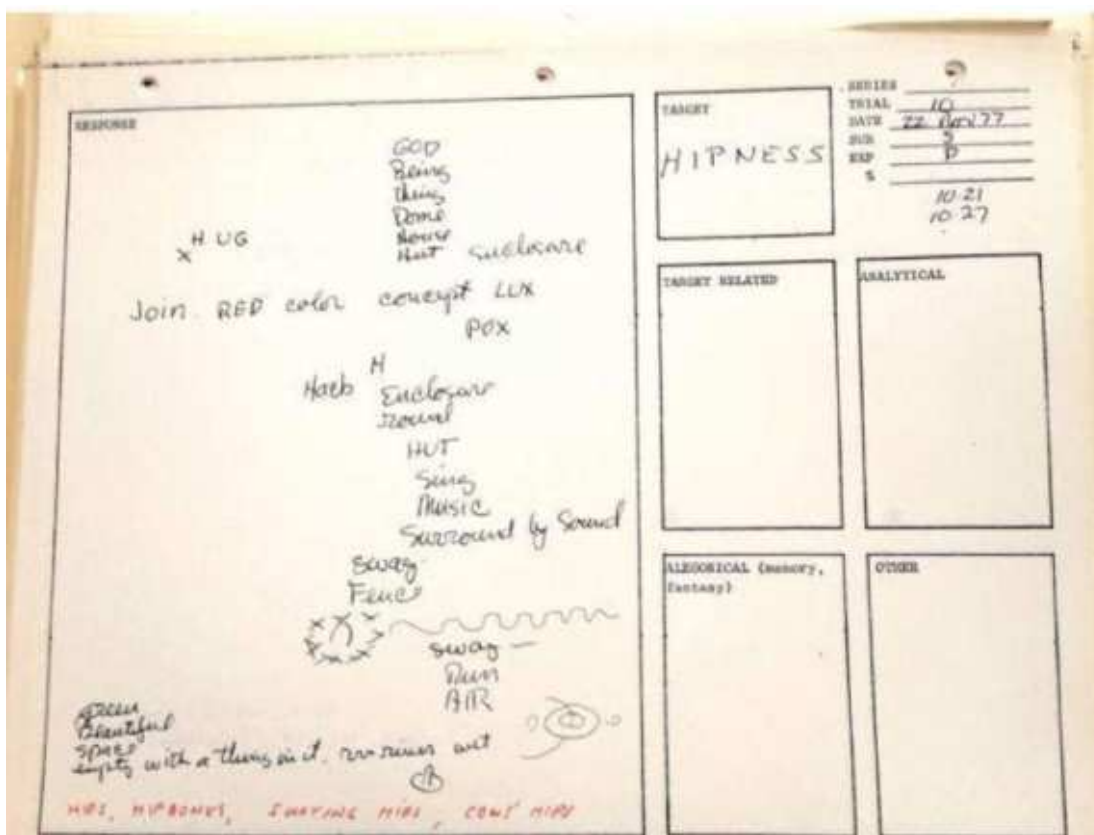 RESPONSE
GOD
Being
thing
Dome
House
Hut enclosure
X H UG
Join RED color concept LUX
POX
H
Enclosure
round
HUT
Sing
Music
Surround by Sound
sway
Fence
sway —
Run
AIR
green
Beautiful
space
empty with a thing in it.
HIPS, HIPBONES, SWAYING HIPS, COWS' HIPS
TARGET
HIPNESS
SERIES
TRIAL 10
DATE 22 Nov 77
SUB S
EXP P
S
10.21
10.27
TARGET RELATED
ANALYTICAL
ALEGORICAL (memory,
fantasy)
OTHER